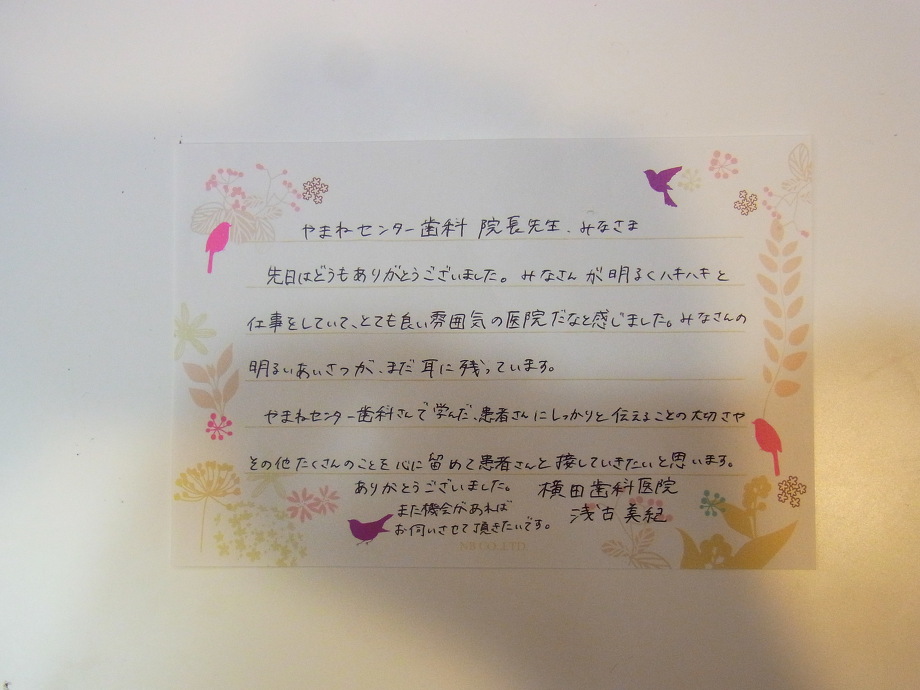 やまねセンター歯科 院長先生、みなさま
先日はどうもありがとうございました。みなさんが明るくハキハキと
仕事をしていて、とても良い雰囲気の医院だなと感じました。みなさんの
明るいあいさつが、まだ耳に残っています。
やまねセンター歯科さんで学んだ、患者さんにしっかりと伝えることの大切さや
その他たくさんのことを心に留めて患者さんと接していきたいと思います。
ありがとうございました。 横田歯科医院
また機会があれば 浅古美紀
お伺いさせて頂きたいです。
NB CO.,LTD